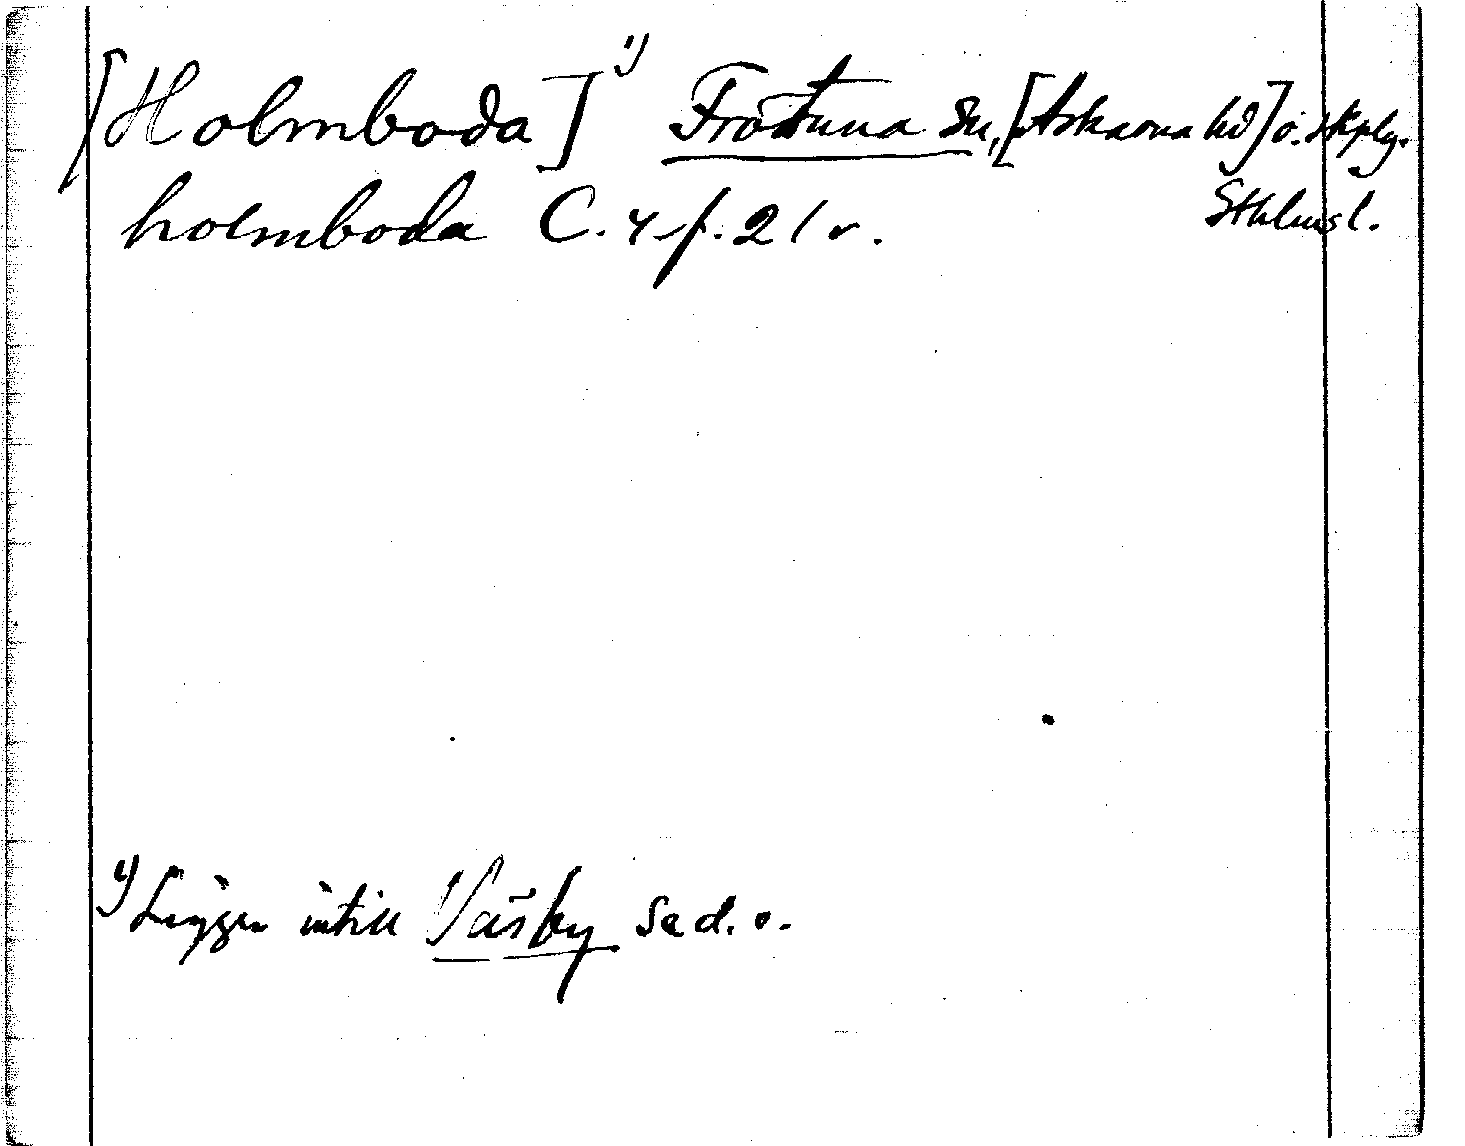 [Holmboda] 1) Frötuna sn, [Åkers hd] ö. skplg.
Sthlms l.
holmboda C. 4 f. 21 v.
1) Ligger intill Väsby se d. o.